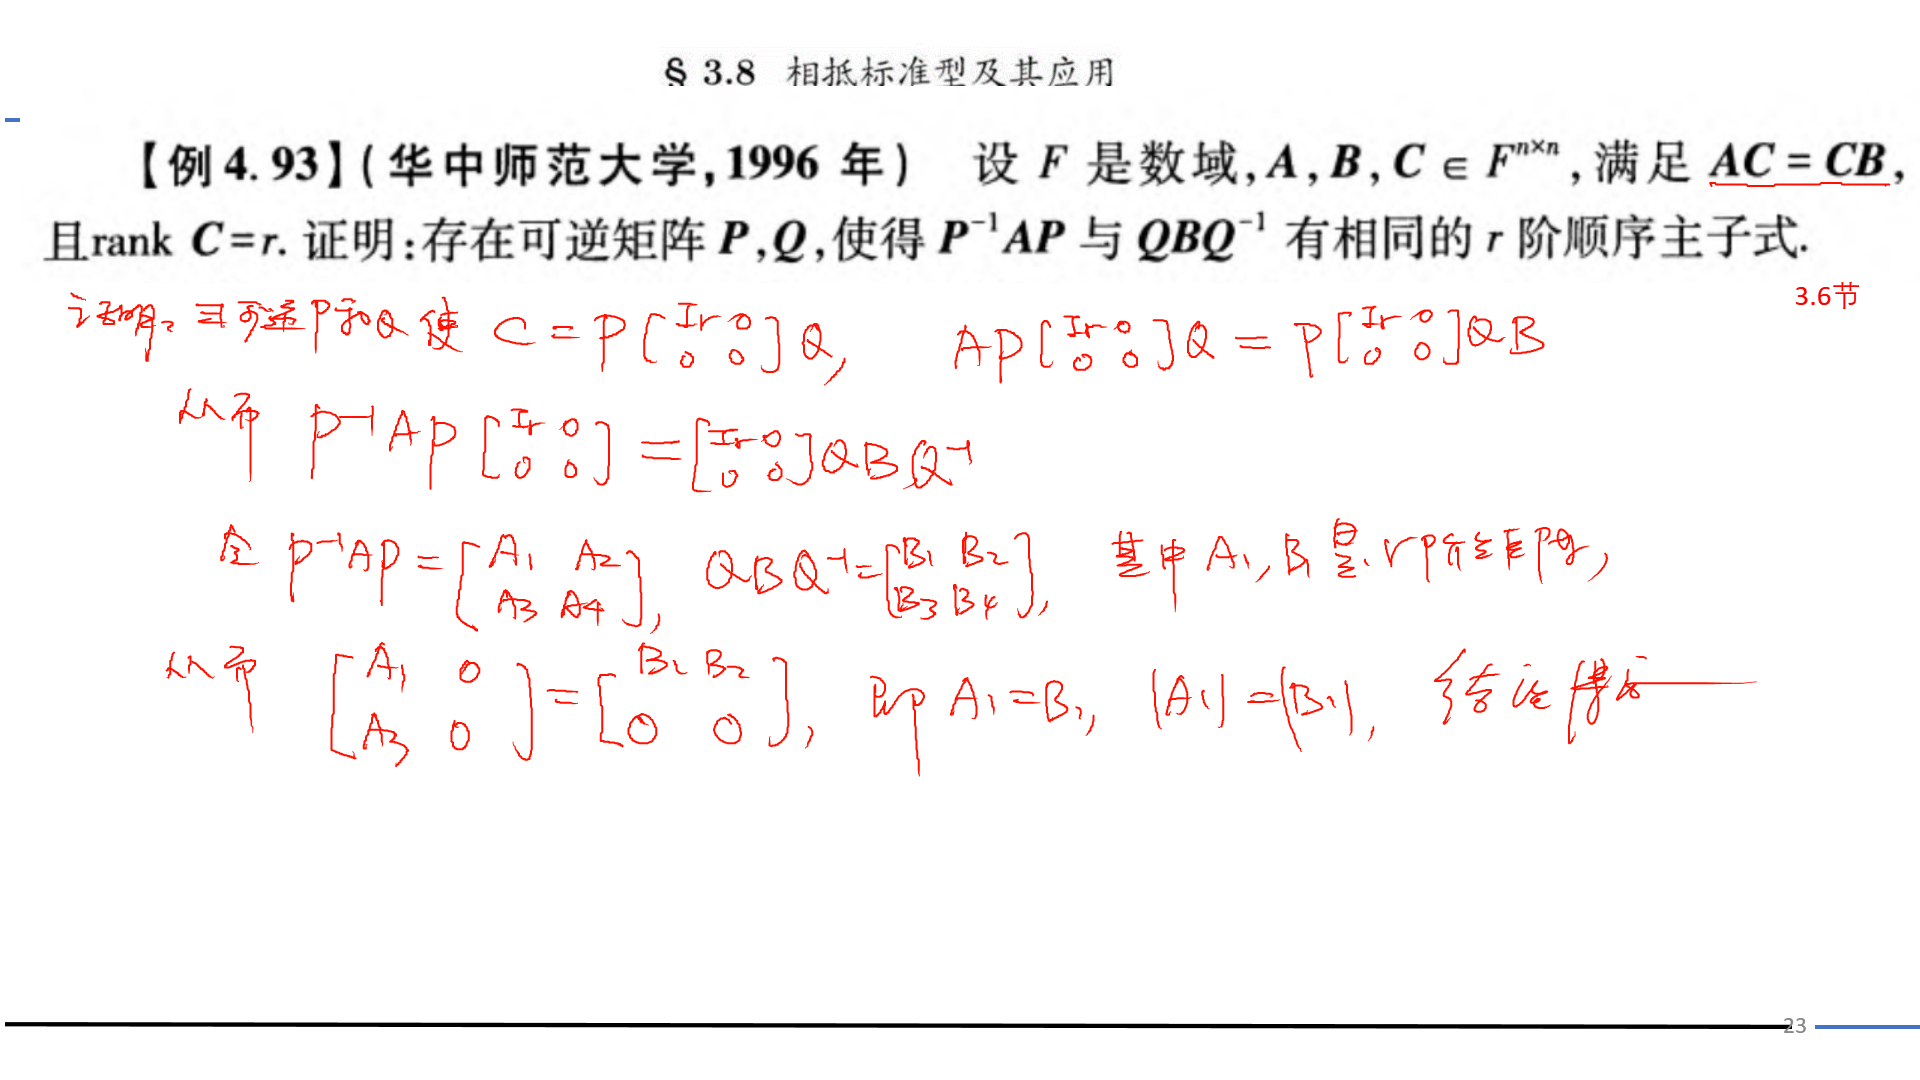 § 3.8 相抵标准型及其应用
【例 4.93】(华中师范大学,1996 年) 设 F 是数域,A,B,C ∈ F^{n×n},满足 AC = CB,
且rank C = r. 证明:存在可逆矩阵 P,Q,使得 P⁻¹AP 与 QBQ⁻¹ 有相同的 r 阶顺序主子式.
3.6节
证明: ∃可逆P和Q 使 C = P [Ir 0; 0 0] Q, AP [Ir 0; 0 0] Q = P [Ir 0; 0 0] QB
从而 P⁻¹AP [Ir 0; 0 0] = [Ir 0; 0 0] QBQ⁻¹
令 P⁻¹AP = [A₁ A₂; A₃ A₄], QBQ⁻¹ = [B₁ B₂; B₃ B₄], 其中 A₁, B₁ 是 r 阶矩阵,
从而 [A₁ 0; A₃ 0] = [B₁ B₂; 0 0], 即 A₁ = B₁, |A₁| = |B₁|, 结论得证
23